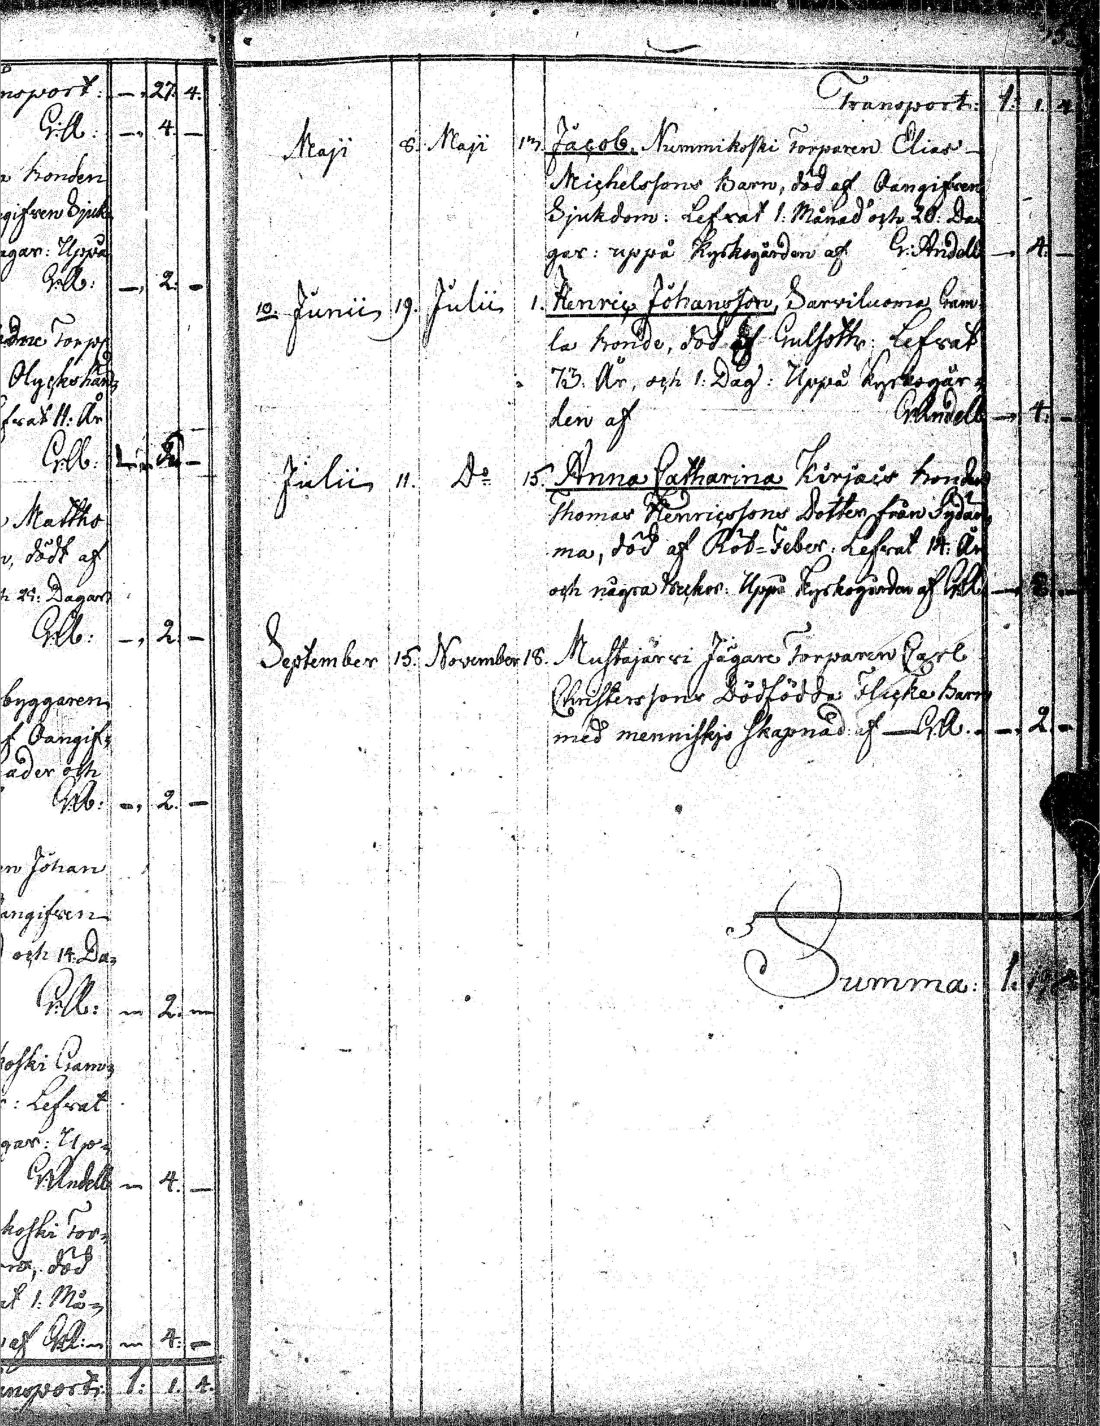 nsport: — 27. 4.
G:A: — 4. —
a bonden
gifven Sjuk
agar: Uppå
G:A: — 2. —
Torpa
Olyckshän=
frat 11: År
G:A:
Mattho
n, dödt af
h 24: Dagar
G:A: — 2. —
byggaren
f Oangif=
ader och
G:A: — 2. —
en Johan
angifven
och 14: Da=
G:A: — 2. —
koski Gam=
: Lefvat
gar: Up=
G:Andell — 4. —
koski Tor=
död
at 1: Må=
af G:A: — 4. —
ansport: 1: 1. 4.
Transport: 1: 1. 4
Maji 8. Maji 13. Jacob, Nummikoski Torparen Elias
Michelssons barn, död af Oangifven
Sjukdom: Lefvat 1: Månad och 20: Da
gar: uppå Kyrkogården af G:Andell — 4. —
10. Junii 19. Julii 1. Henric Johansson, Sarviluoma Gam
la bonde, död af Gulsoth: Lefvat
73: År, och 1: Dag: Uppå Kyrkogår=
den af G:Andell — 4. —
Julii 11. Do 15. Anna Catharina Kirjais bonden
Thomas Henricssons Dotter från Sydän
ma, död af Röt=Feber: Lefvat 14: År
och några veckor: Uppå Kyrkogården af G:A:
September 15. November 18. Mustajärvi Jägare Torparen Carl
Christerssons Dödfödda Flicke barn
med menniskjo skapnad: af — G:A. — 2. —
Summa: 1.